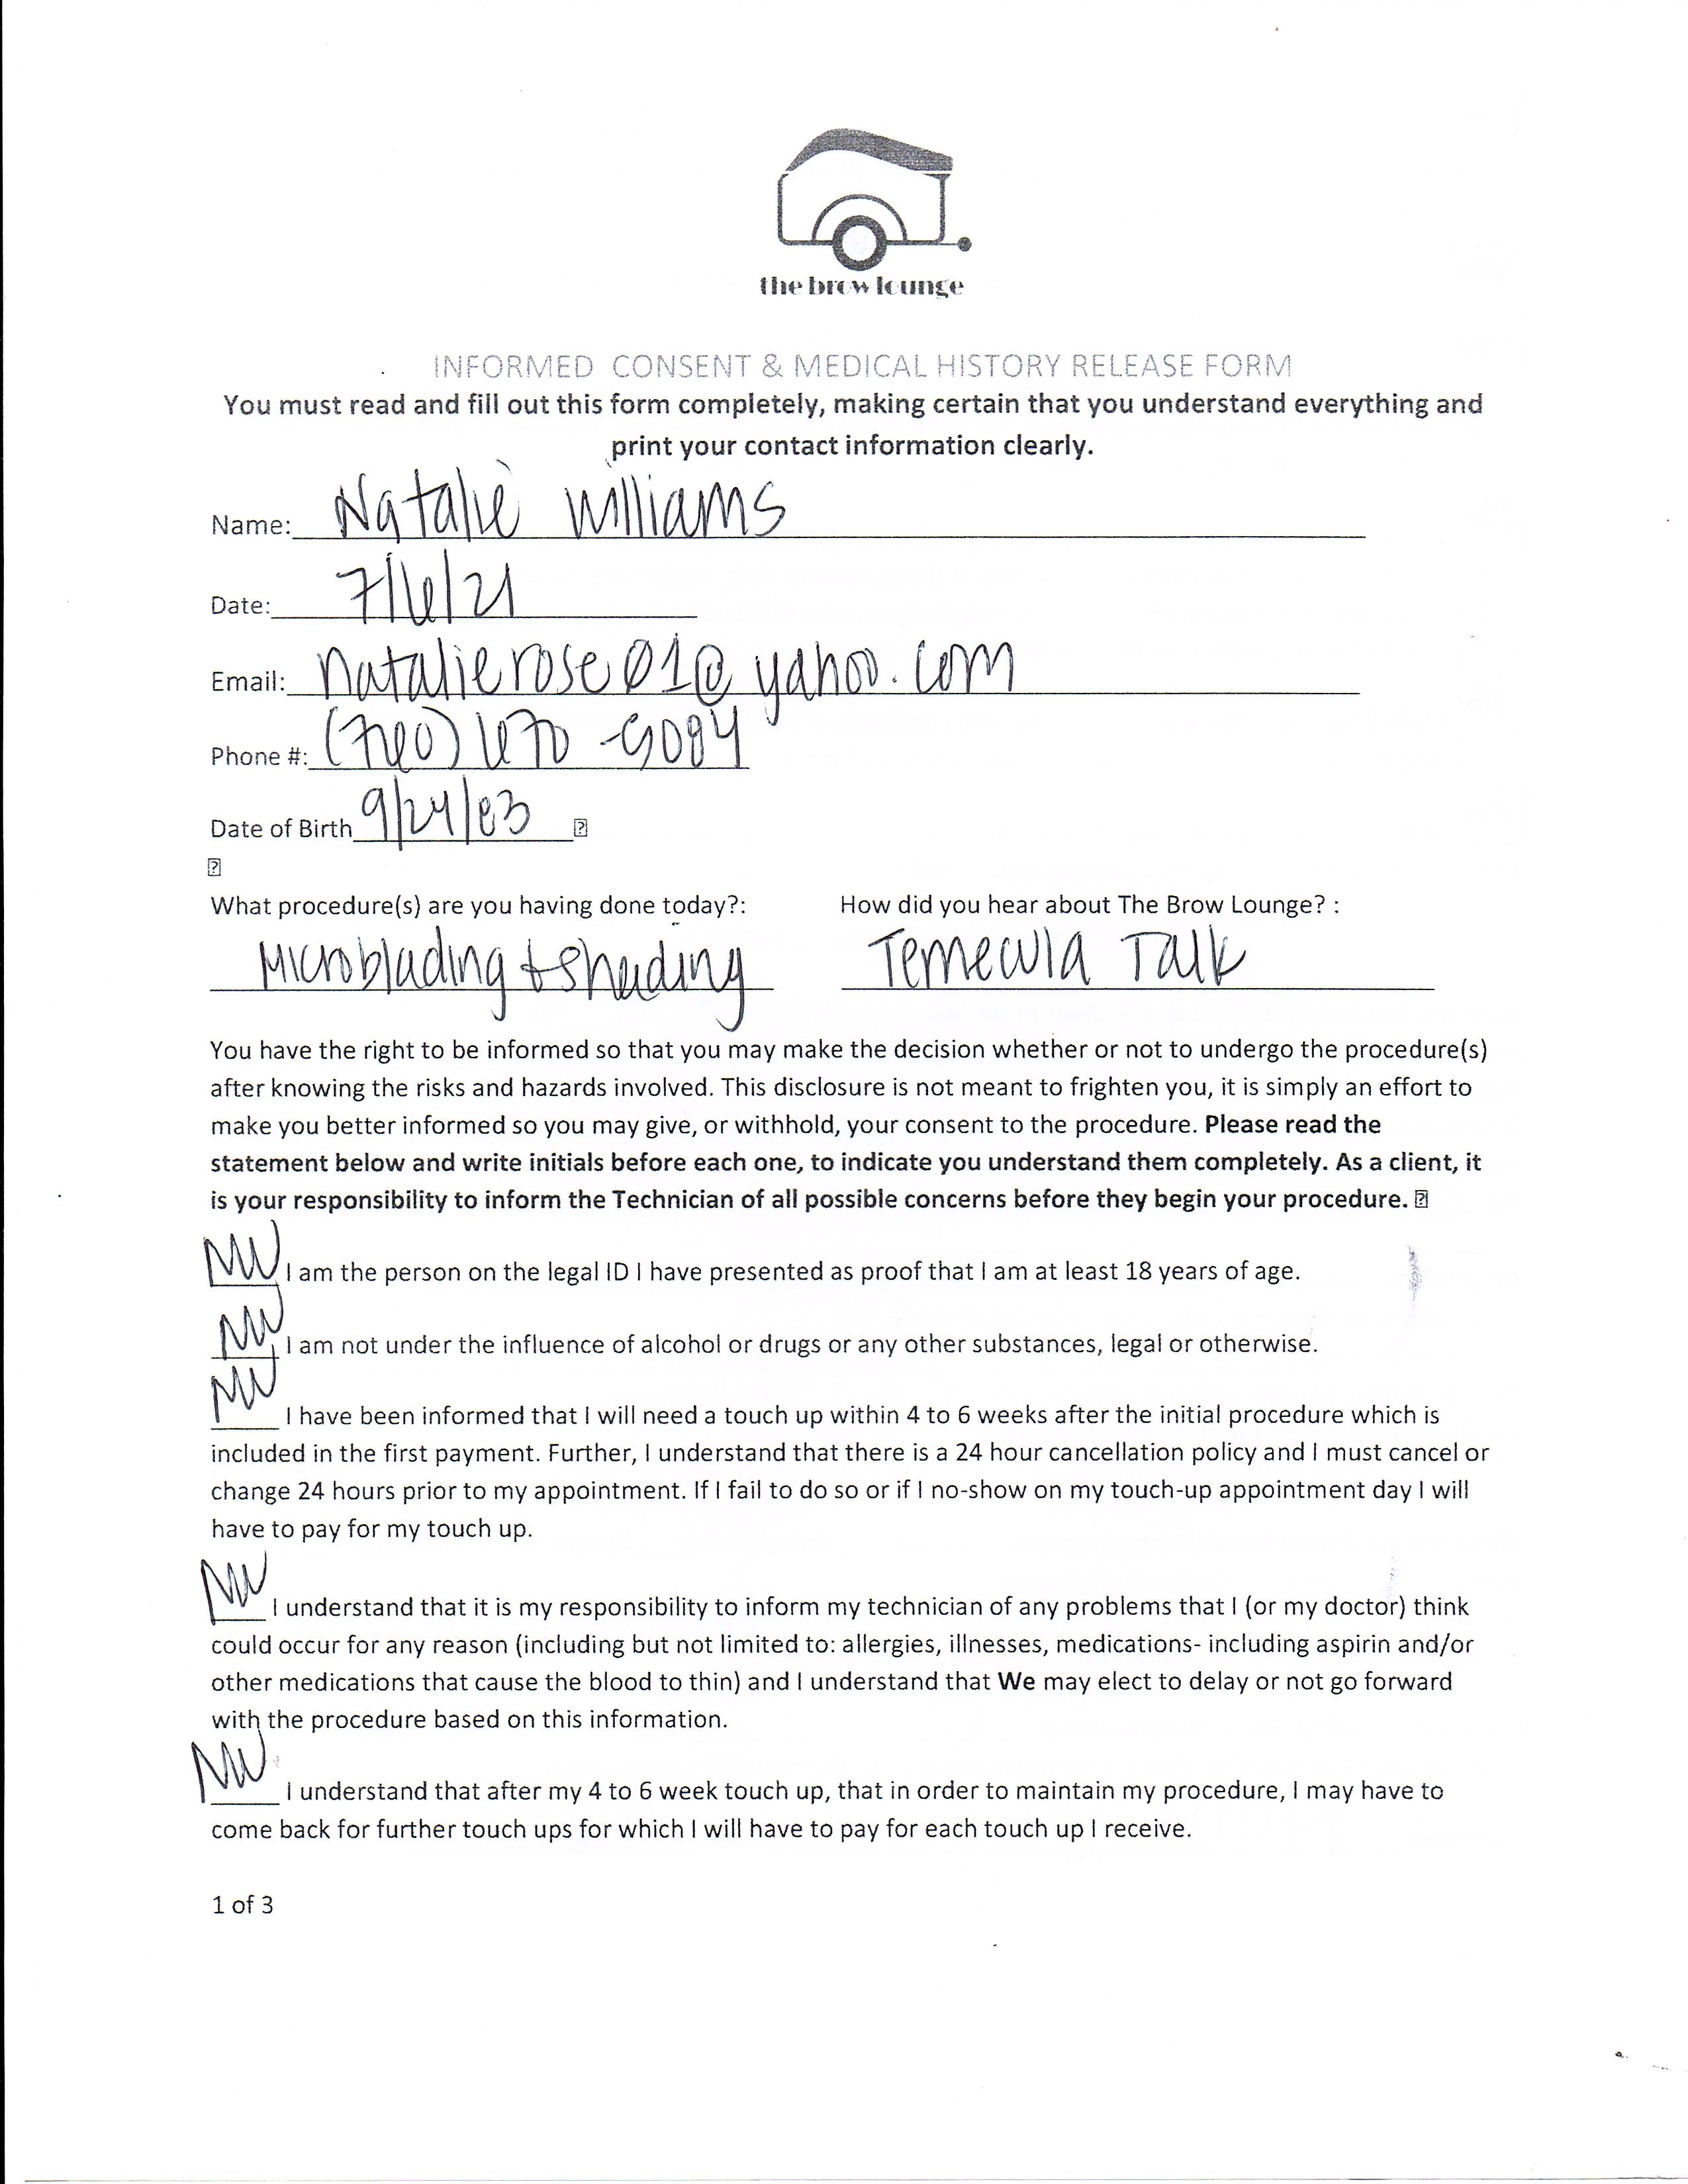 the brow lounge
INFORMED CONSENT & MEDICAL HISTORY RELEASE FORM
You must read and fill out this form completely, making certain that you understand everything and
print your contact information clearly.
Name: Natalie Williams
Date: 7/6/21
Email: natalierose01@yahoo.com
Phone #:
Date of Birth 9/24/83
What procedure(s) are you having done today?: How did you hear about The Brow Lounge? :
Microblading + shading Temecula Talk
You have the right to be informed so that you may make the decision whether or not to undergo the procedure(s)
after knowing the risks and hazards involved. This disclosure is not meant to frighten you, it is simply an effort to
make you better informed so you may give, or withhold, your consent to the procedure. Please read the
statement below and write initials before each one, to indicate you understand them completely. As a client, it
is your responsibility to inform the Technician of all possible concerns before they begin your procedure.
NW I am the person on the legal ID I have presented as proof that I am at least 18 years of age.
NW I am not under the influence of alcohol or drugs or any other substances, legal or otherwise.
NW I have been informed that I will need a touch up within 4 to 6 weeks after the initial procedure which is
included in the first payment. Further, I understand that there is a 24 hour cancellation policy and I must cancel or
change 24 hours prior to my appointment. If I fail to do so or if I no-show on my touch-up appointment day I will
have to pay for my touch up.
NW I understand that it is my responsibility to inform my technician of any problems that I (or my doctor) think
could occur for any reason (including but not limited to: allergies, illnesses, medications- including aspirin and/or
other medications that cause the blood to thin) and I understand that We may elect to delay or not go forward
with the procedure based on this information.
NW I understand that after my 4 to 6 week touch up, that in order to maintain my procedure, I may have to
come back for further touch ups for which I will have to pay for each touch up I receive.
1 of 3